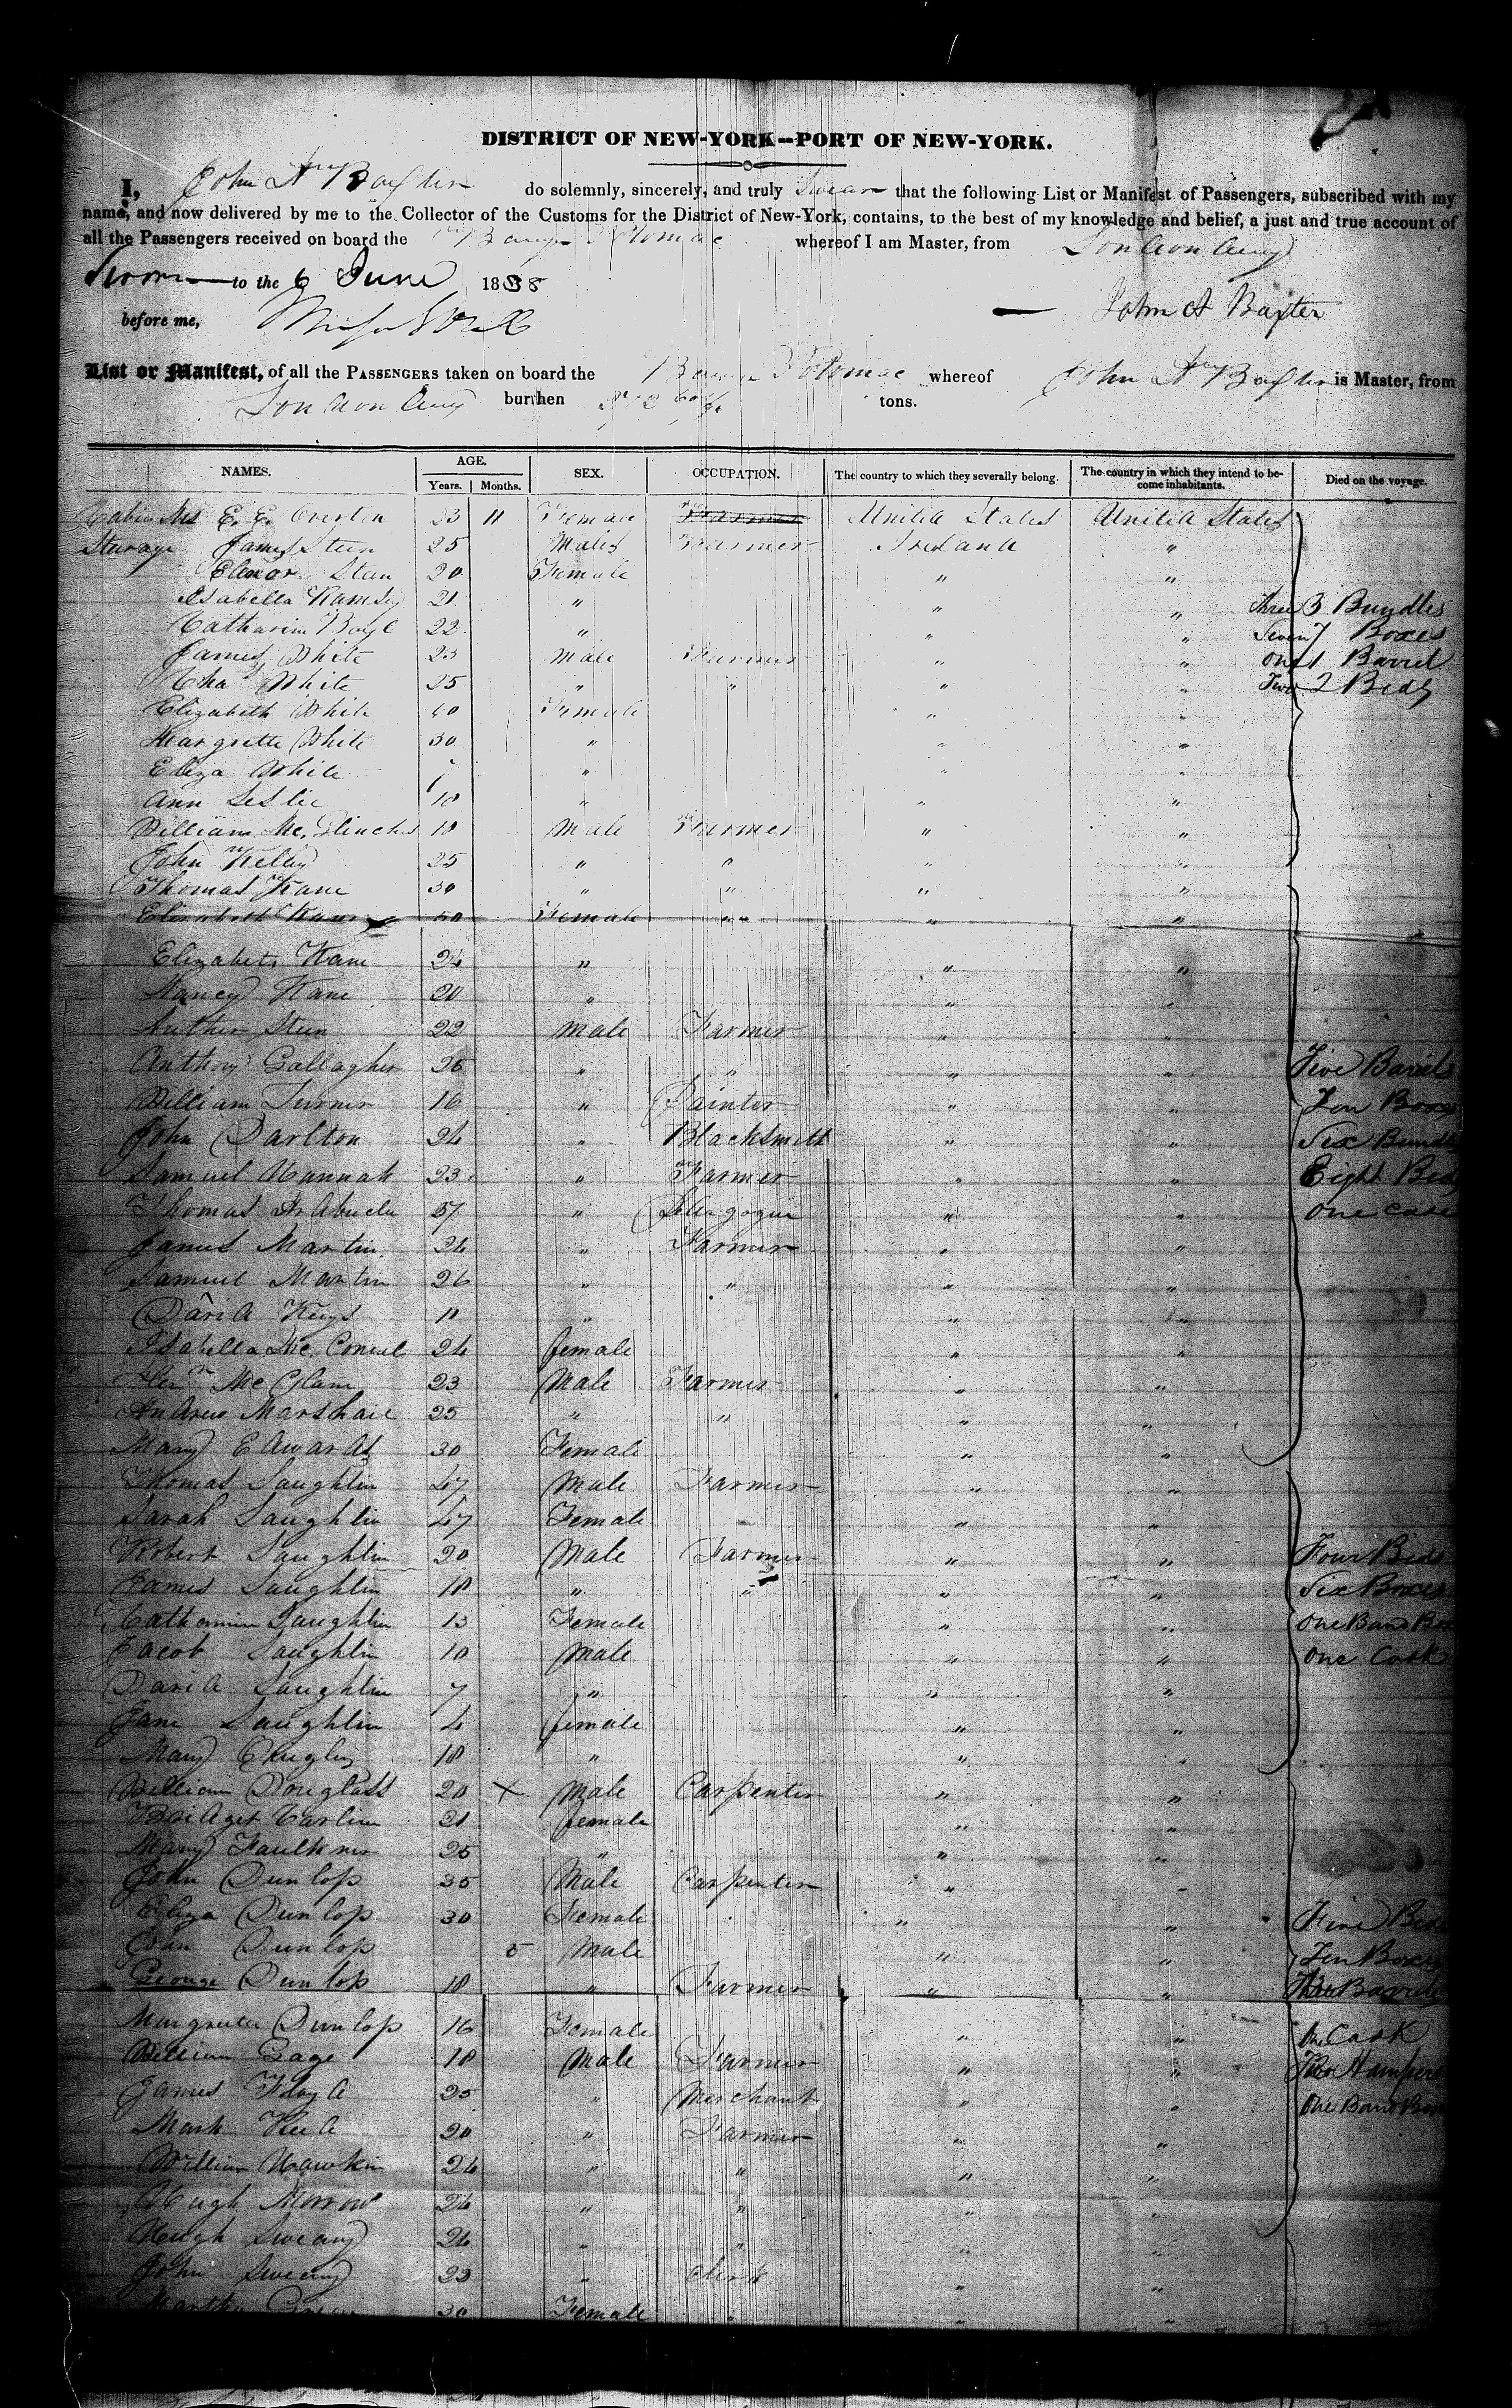 DISTRICT OF NEW-YORK--PORT OF NEW-YORK.
I, John A Baxter do solemnly, sincerely, and truly Swear that the following List or Manifest of Passengers, subscribed with my
name, and now delivered by me to the Collector of the Customs for the District of New-York, contains, to the best of my knowledge and belief, a just and true account of
all the Passengers received on board the Barque Potomac whereof I am Master, from
Sworn to the 6 June 1838
before me, John A Baxter
List or Manifest, of all the PASSENGERS taken on board the Barque Potomac whereof John A Baxter is Master, from
burthen tons.
NAMES. AGE. Years. Months. SEX. OCCUPATION. The country to which they severally belong. The country in which they intend to become inhabitants. Died on the voyage.
Cabin E. E. Overton 23 11 Female United States United States
Sterage James Steen 25 Males Farmer Ireland "
Elenor Steen 20 Female " "
Isabella Ramsey 21 " " " Three 3 Bundles
Catharine Boyl 22 " " " Seven 7 Boxes
James White 23 Male Farmer " " One 1 Barrel
Chas White 25 " " " " Two 2 Beds
Elizabeth White 40 Female " "
Margrette White 30 " " "
Eliza White " " "
Ann Leslie 18 " " "
William Mc. 18 Male Farmer " "
John Kelay 25 " " " "
Thomas Kane 30 " " " "
Elizabeth Kane 50 Female " " "
Elizabeth Kane 24 " " "
Nancy Kane 20 " " "
Steen 22 Male Farmer " "
Anthony Gallagher 26 " " " " Five Barrels
William Turner 16 " Painter " " Ten Boxes
John Darlton 24 " Blacksmith " " Six Bundl
Samuel Hannah 23 " Farmer " " Eight Beds
Thomas 37 " " " One Case
James Martin 24 " Farmer " "
Samuel Martin 26 " " " "
David Keys 11 " " "
Isabella Mc. 24 female " "
Mc 23 Male Farmer " "
Andrew Marshall 25 " " " "
Mary Edwards 30 Female " "
Thomas Laughlin 47 Male Farmer " "
Sarah Laughlin 47 Female " "
Robert Laughlin 20 Male Farmer " " Four Beds
James Laughlin 18 " " " " Six Boxes
Catharine Laughlin 13 Female " " One Band Box
Jacob Laughlin 10 Male " " One Cask
David Laughlin 7 " " "
Jane Laughlin 4 female " "
Mary 18 " " "
William Douglass 20 X Male Carpenter " "
Bridget Carlin 21 female " "
Mary Faulkner 25 " " "
John Dunlop 35 Male Carpenter " "
Eliza Dunlop 30 Female " " Five Beds
John Dunlop 5 Male " " Ten Boxes
George Dunlop 18 " Farmer " " Barrels
Margrette Dunlop 16 Female " " One Cask
William Gage 18 Male Farmer " " Two Hampers
James Floyd 25 " Merchant " " One Band Box
Mark 20 " Farmer " "
William Hawkin 24 " " " "
Hugh Morrow 24 " " " "
Hugh Sweany 24 " " " "
John Sweany 23 " Clerk " "
Martha 30 Female " "